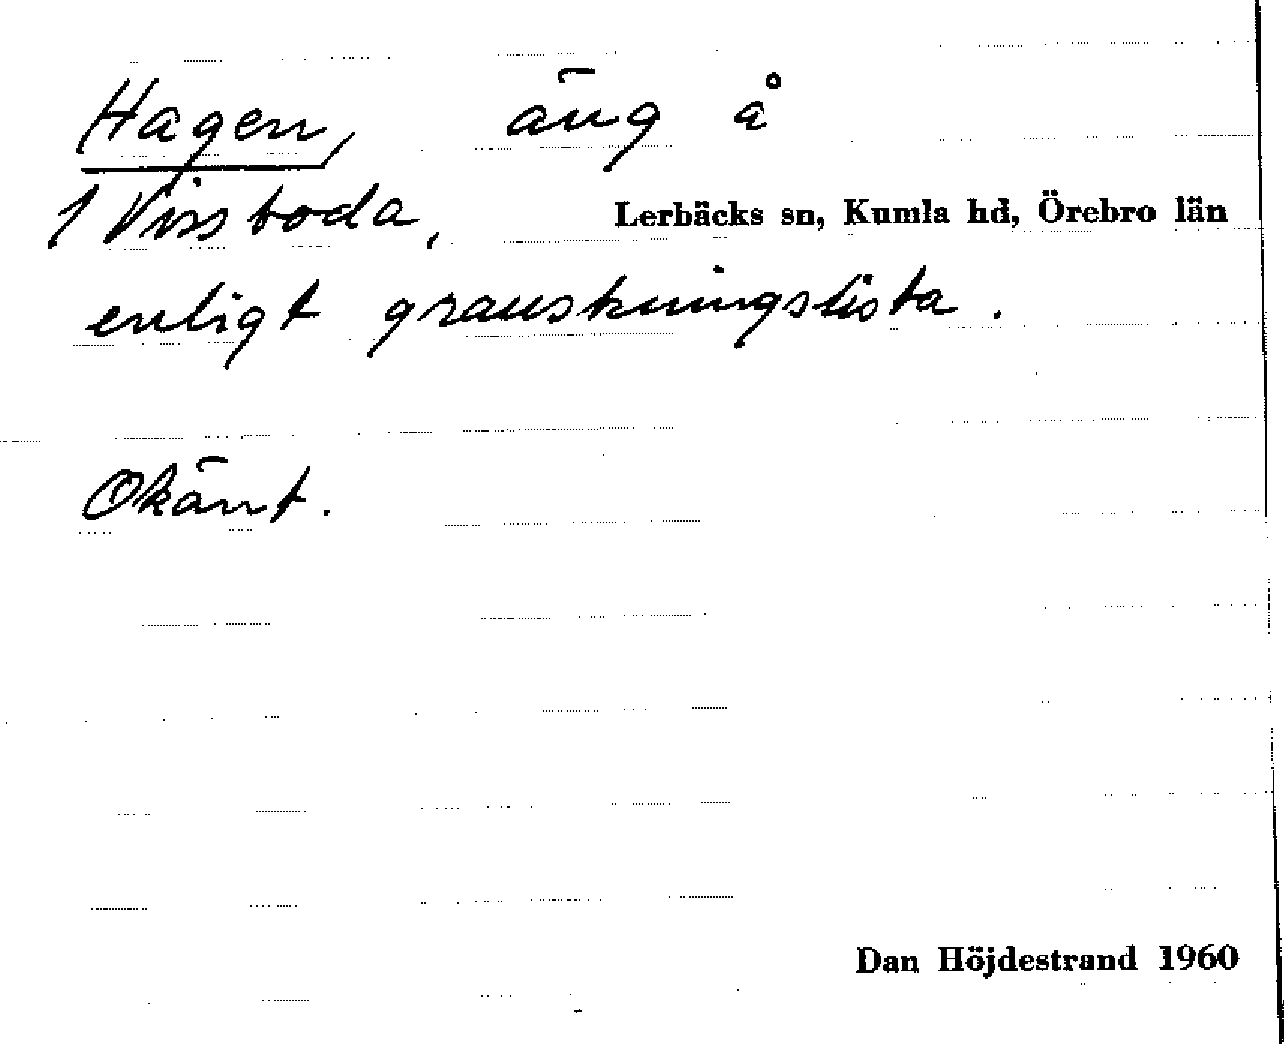 Hagen, äng å
1 Vissboda, Lerbäcks sn, Kumla hd, Örebro län
enligt granskningslista.
Okänt.
Dan Höjdestrand 1960